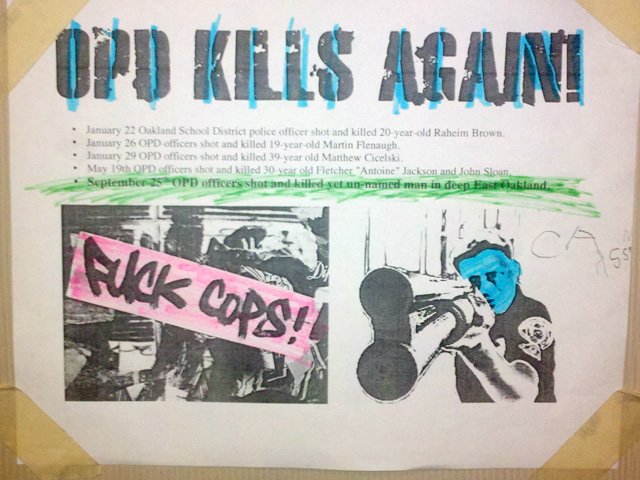 OPD KILLS AGAIN!
• January 22 Oakland School District police officer shot and killed 20-year-old Raheim Brown.
• January 26 OPD officers shot and killed 19-year-old Martin Flenaugh.
• January 29 OPD officers shot and killed 39-year old Matthew Cicelski.
• May 19th OPD officers shot and killed 30-year old Fletcher "Antoine" Jackson and John Sloan.
• September 25th OPD officers shot and killed yet un-named man in deep East Oakland.
FUCK COPS!
CA